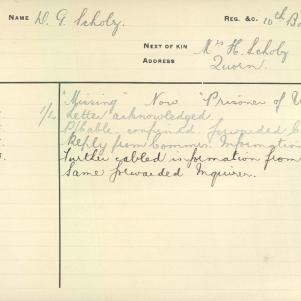 NAME D. G. Scholz. REG. &C. 10th Ba
NEXT OF KIN Mrs H. Scholz
ADDRESS Quorn.
"Missing" Now "Prisoner of W
1/2 Letter acknowledged.
P/Cable confirmed forwarded
Reply from Commns. Information
Further cabled information from
same forwarded Inquirer.